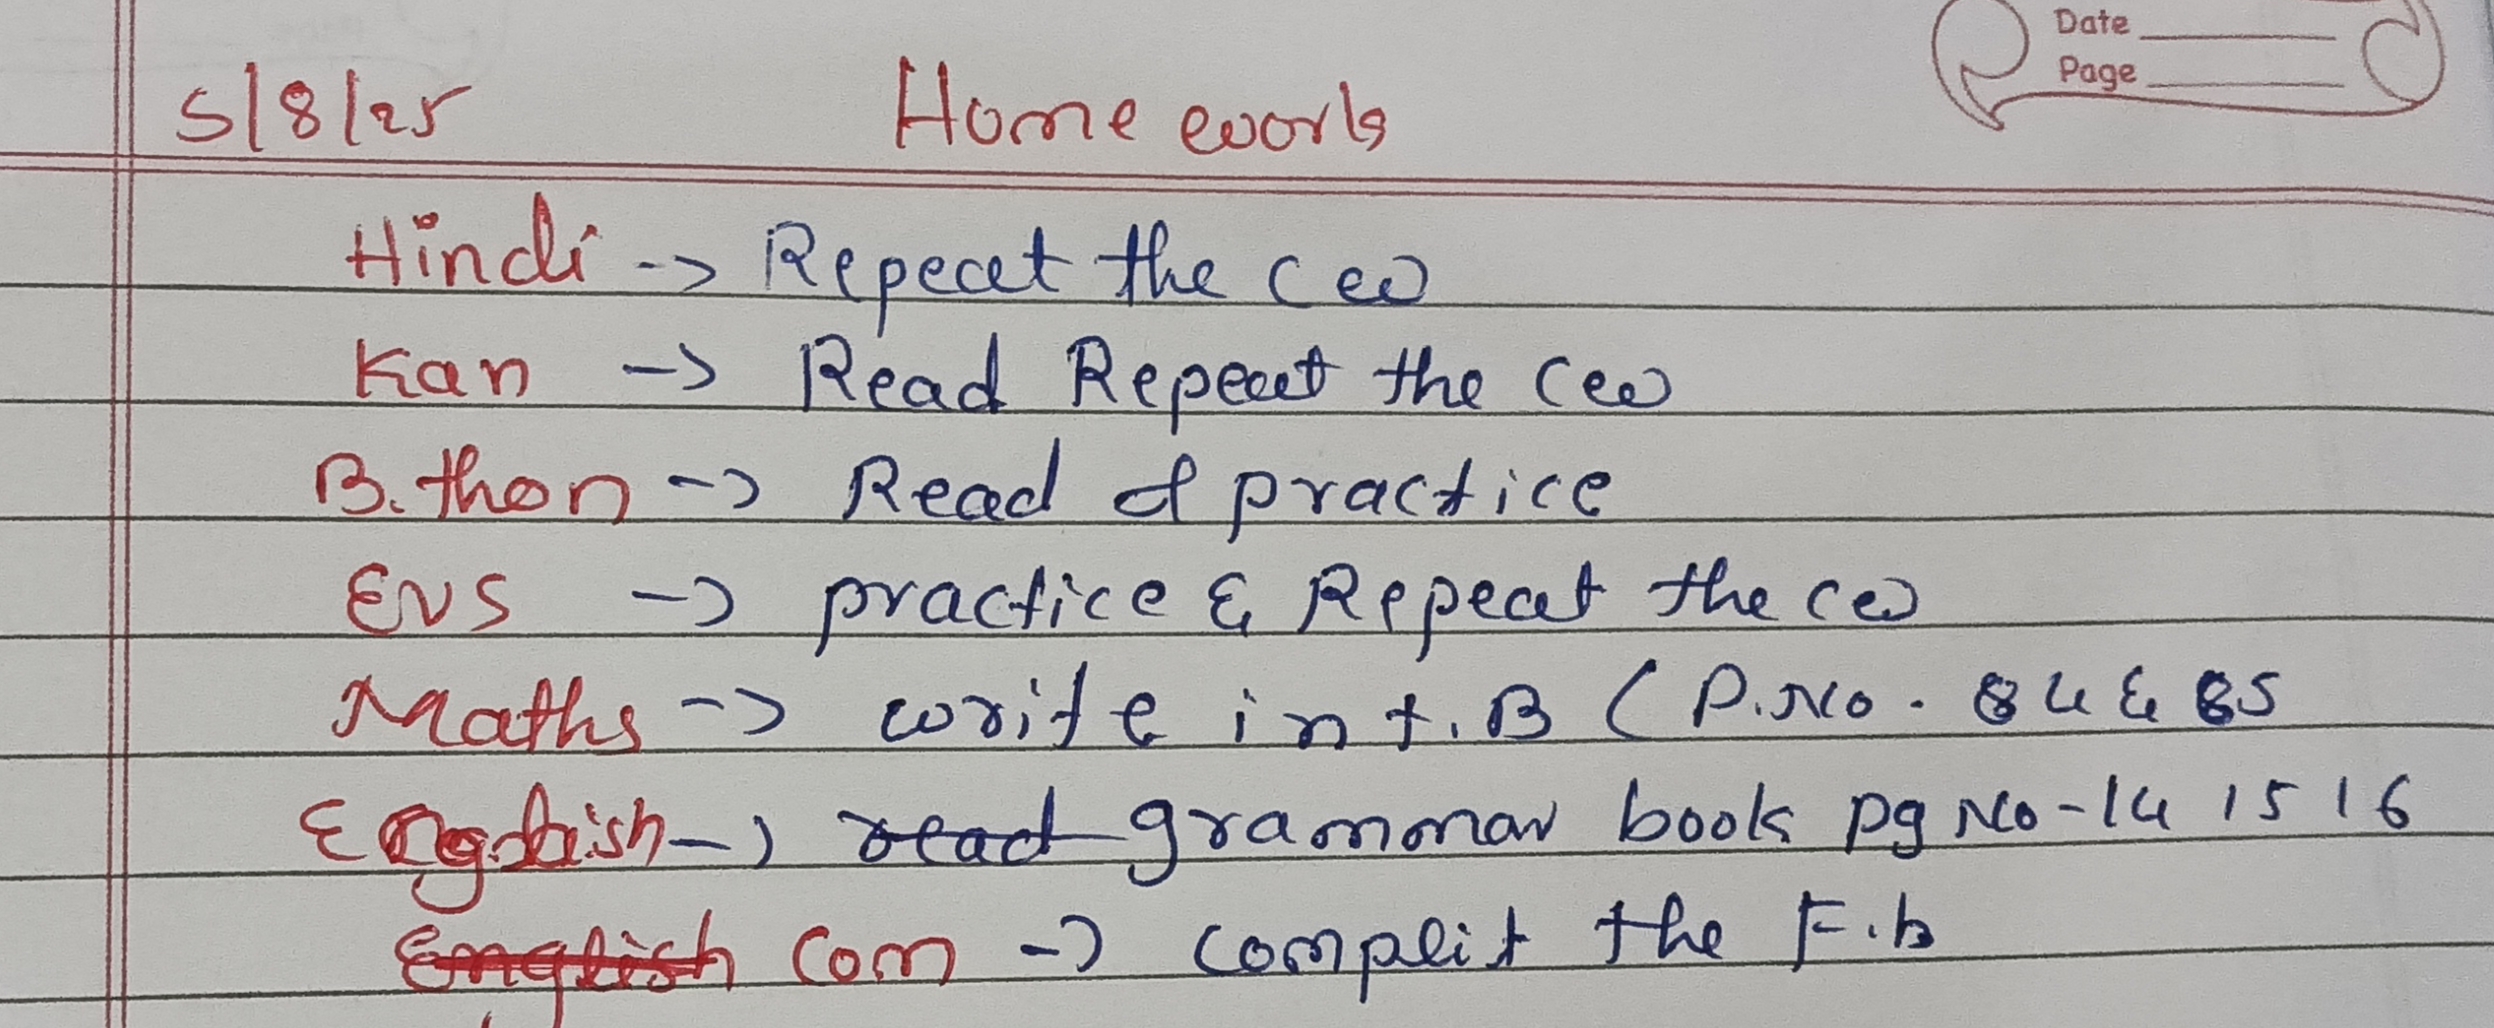 Date
Page
5/8/25 Home work
Hindi -> Repeat the cw
Kan -> Read Repeat the cw
B.thon -> Read & practice
EVS -> practice & Repeat the cw
Maths -> write in t.B (P.No. 84 & 85
English -> read grammar book pg No-14 15 16
English Com -> complit the F.b